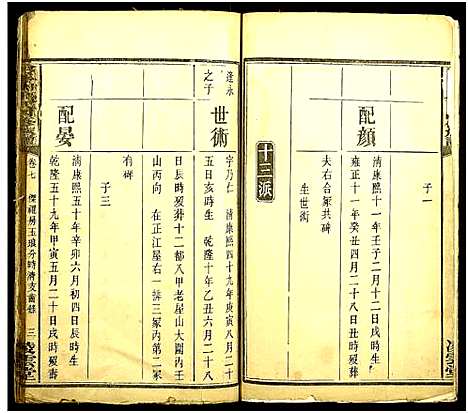 子一
配顏
清康熙十一年壬子二月二十八日戌時生
雍正十一年癸丑四月二十八日戌時歿葬
夫右合冢共碑
生世術
十三派
逢永之子
世術
字乃仁 清康熙四十九年庚寅八月二十
五日亥時生 乾隆十年乙丑六月二十八
日辰時歿葬十二都八甲老屋山大園內壬
山丙向 在正江屋右一排三冢內第二冢
有碑
子三
配晏
清康熙五十年辛卯六月初四日辰時生
乾隆五十九年甲寅五月二十日戌時歿葬
卷七 傑禮房玉琅分時濟支齒錄 三